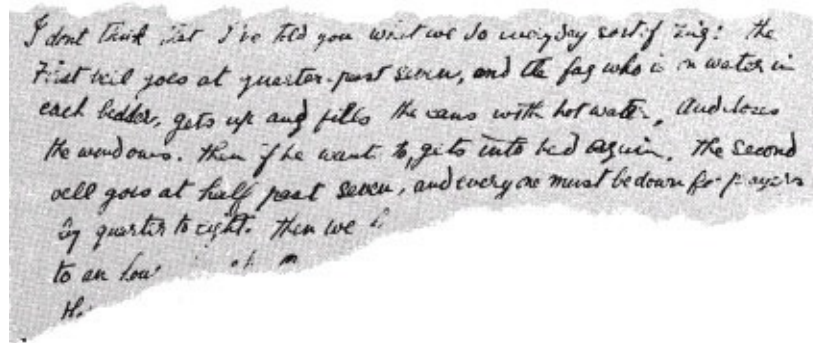 I dont think that I've told you what we do everyday sort of ing: the
First bell goes at quarter-past seven, and the fag who is on water in
each bedder, gets up and fills the cans with hot water, And closes
the windows. then if he want to, gets into bed again. the second
bell goes at half past seven, and everyone must be down for prayers
by quarter to eight. then we
to an hour
H